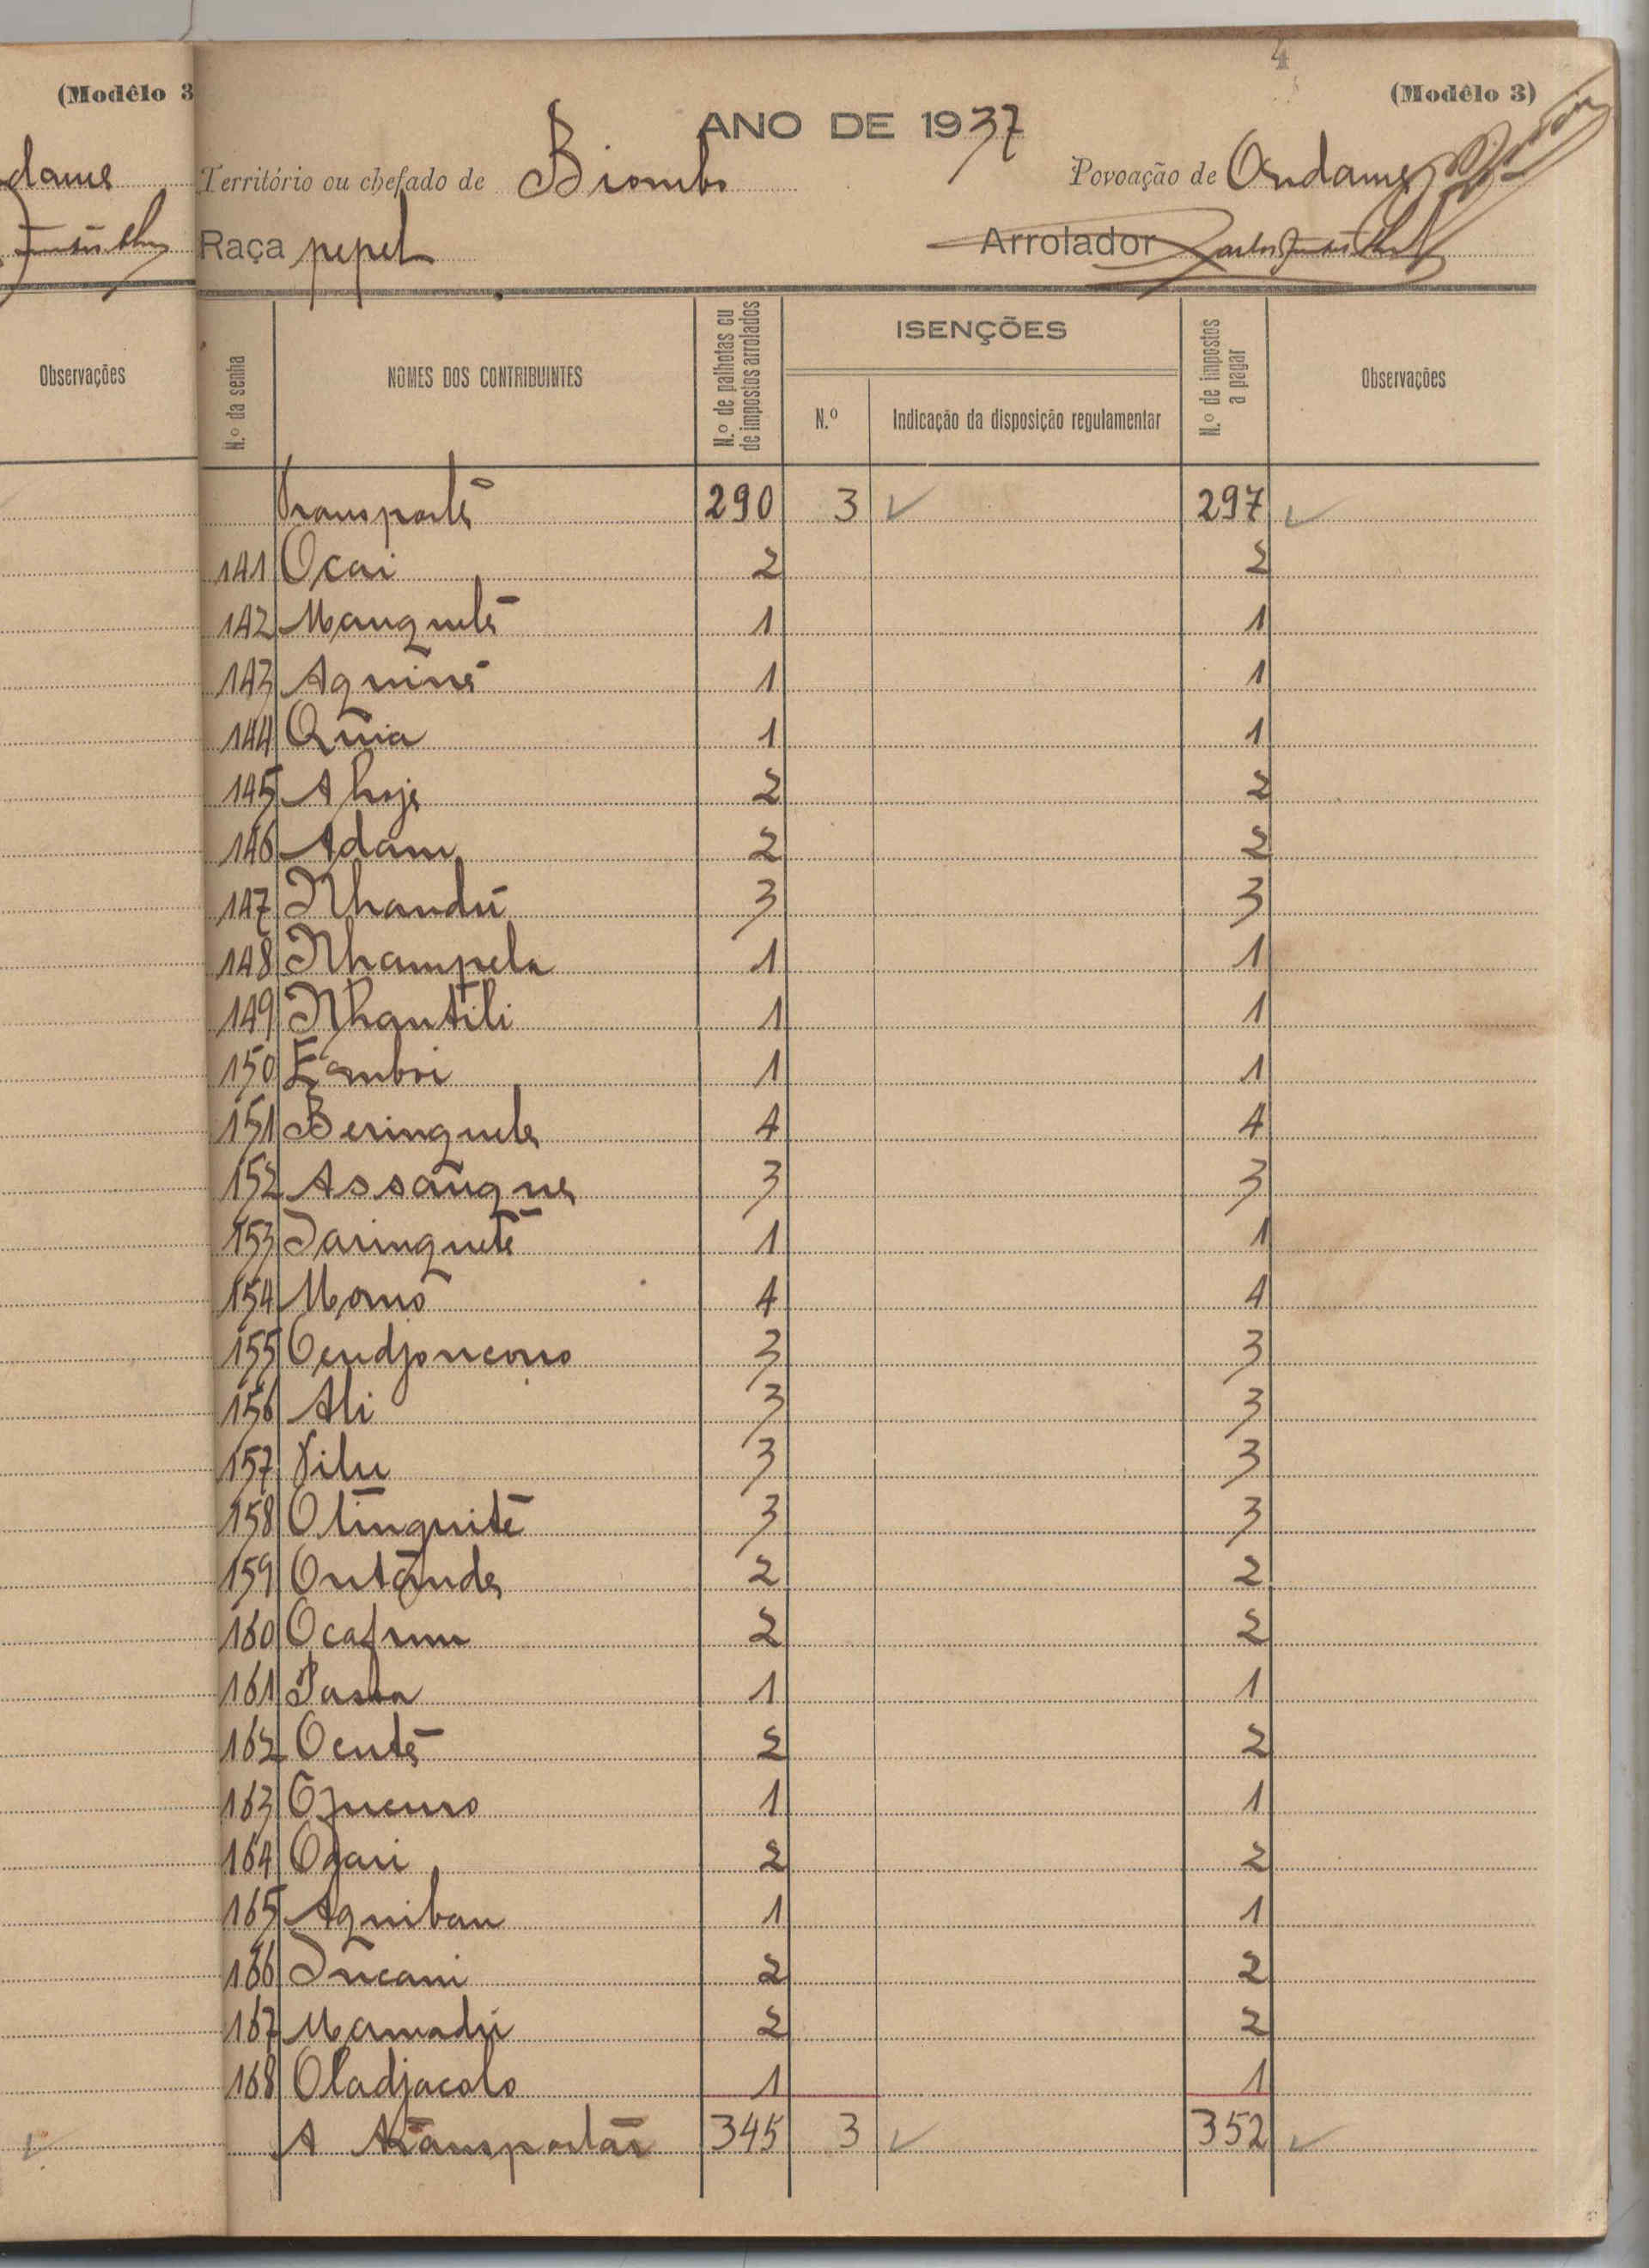 (Modêlo 3
dame
Observações
4
(Modêlo 3)
ANO DE 1937
Território ou chefado de Biombo
Povoação de Ondame
Raça pepel
Arrolador
N.º da senha
NOMES DOS CONTRIBUINTES
N.º de palhotas ou de impostos arrolados
ISENÇÕES
N.º
Indicação da disposição regulamentar
N.º de impostos a pagar
Observações
Transporte 290 3 ✓ 297 ✓
141 Ocai 2 2
142 Manquelé 1 1
143 Aquiné 1 1
144 Quia 1 1
145 Ahoje 2 2
146 Adam 2 2
147 Nhandú 3 3
148 Nhampela 1 1
149 Nhantili 1 1
150 Eomboi 1 1
151 Berinquele 4 4
152 Assanque 3 3
153 Jarinqueté 1 1
154 Momo 4 4
155 Oendjoncono 3 3
156 Ali 3 3
157 Vilu 3 3
158 Otinquité 3 3
159 Ontande 2 2
160 Ocafrum 2 2
161 1 1
162 Ocuté 2 2
163 1 1
164 2 2
165 Aquiban 1 1
166 2 2
167 Mamadú 2 2
168 Oladjacolo 1 1
A transportar 345 3 ✓ 352 ✓